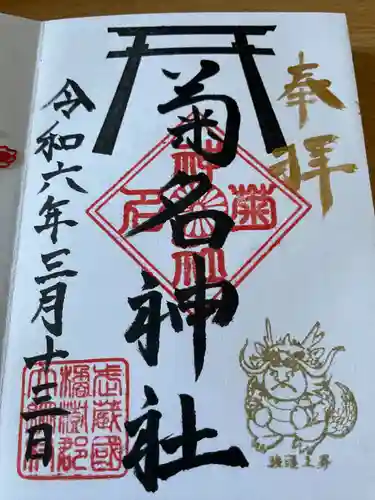 奉拝
菊名神社
令和六年三月十三日
菊名神社
武蔵國
橘樹郡